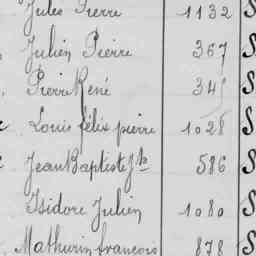 Jules Pierre 1132 S
Julien Pierre 367 S
Pierre René 34 S
Louis félix pierre 1028 S
Jean Baptiste Jh 586 S
Isidore Julien 1080 S
Mathurin francois 878 S